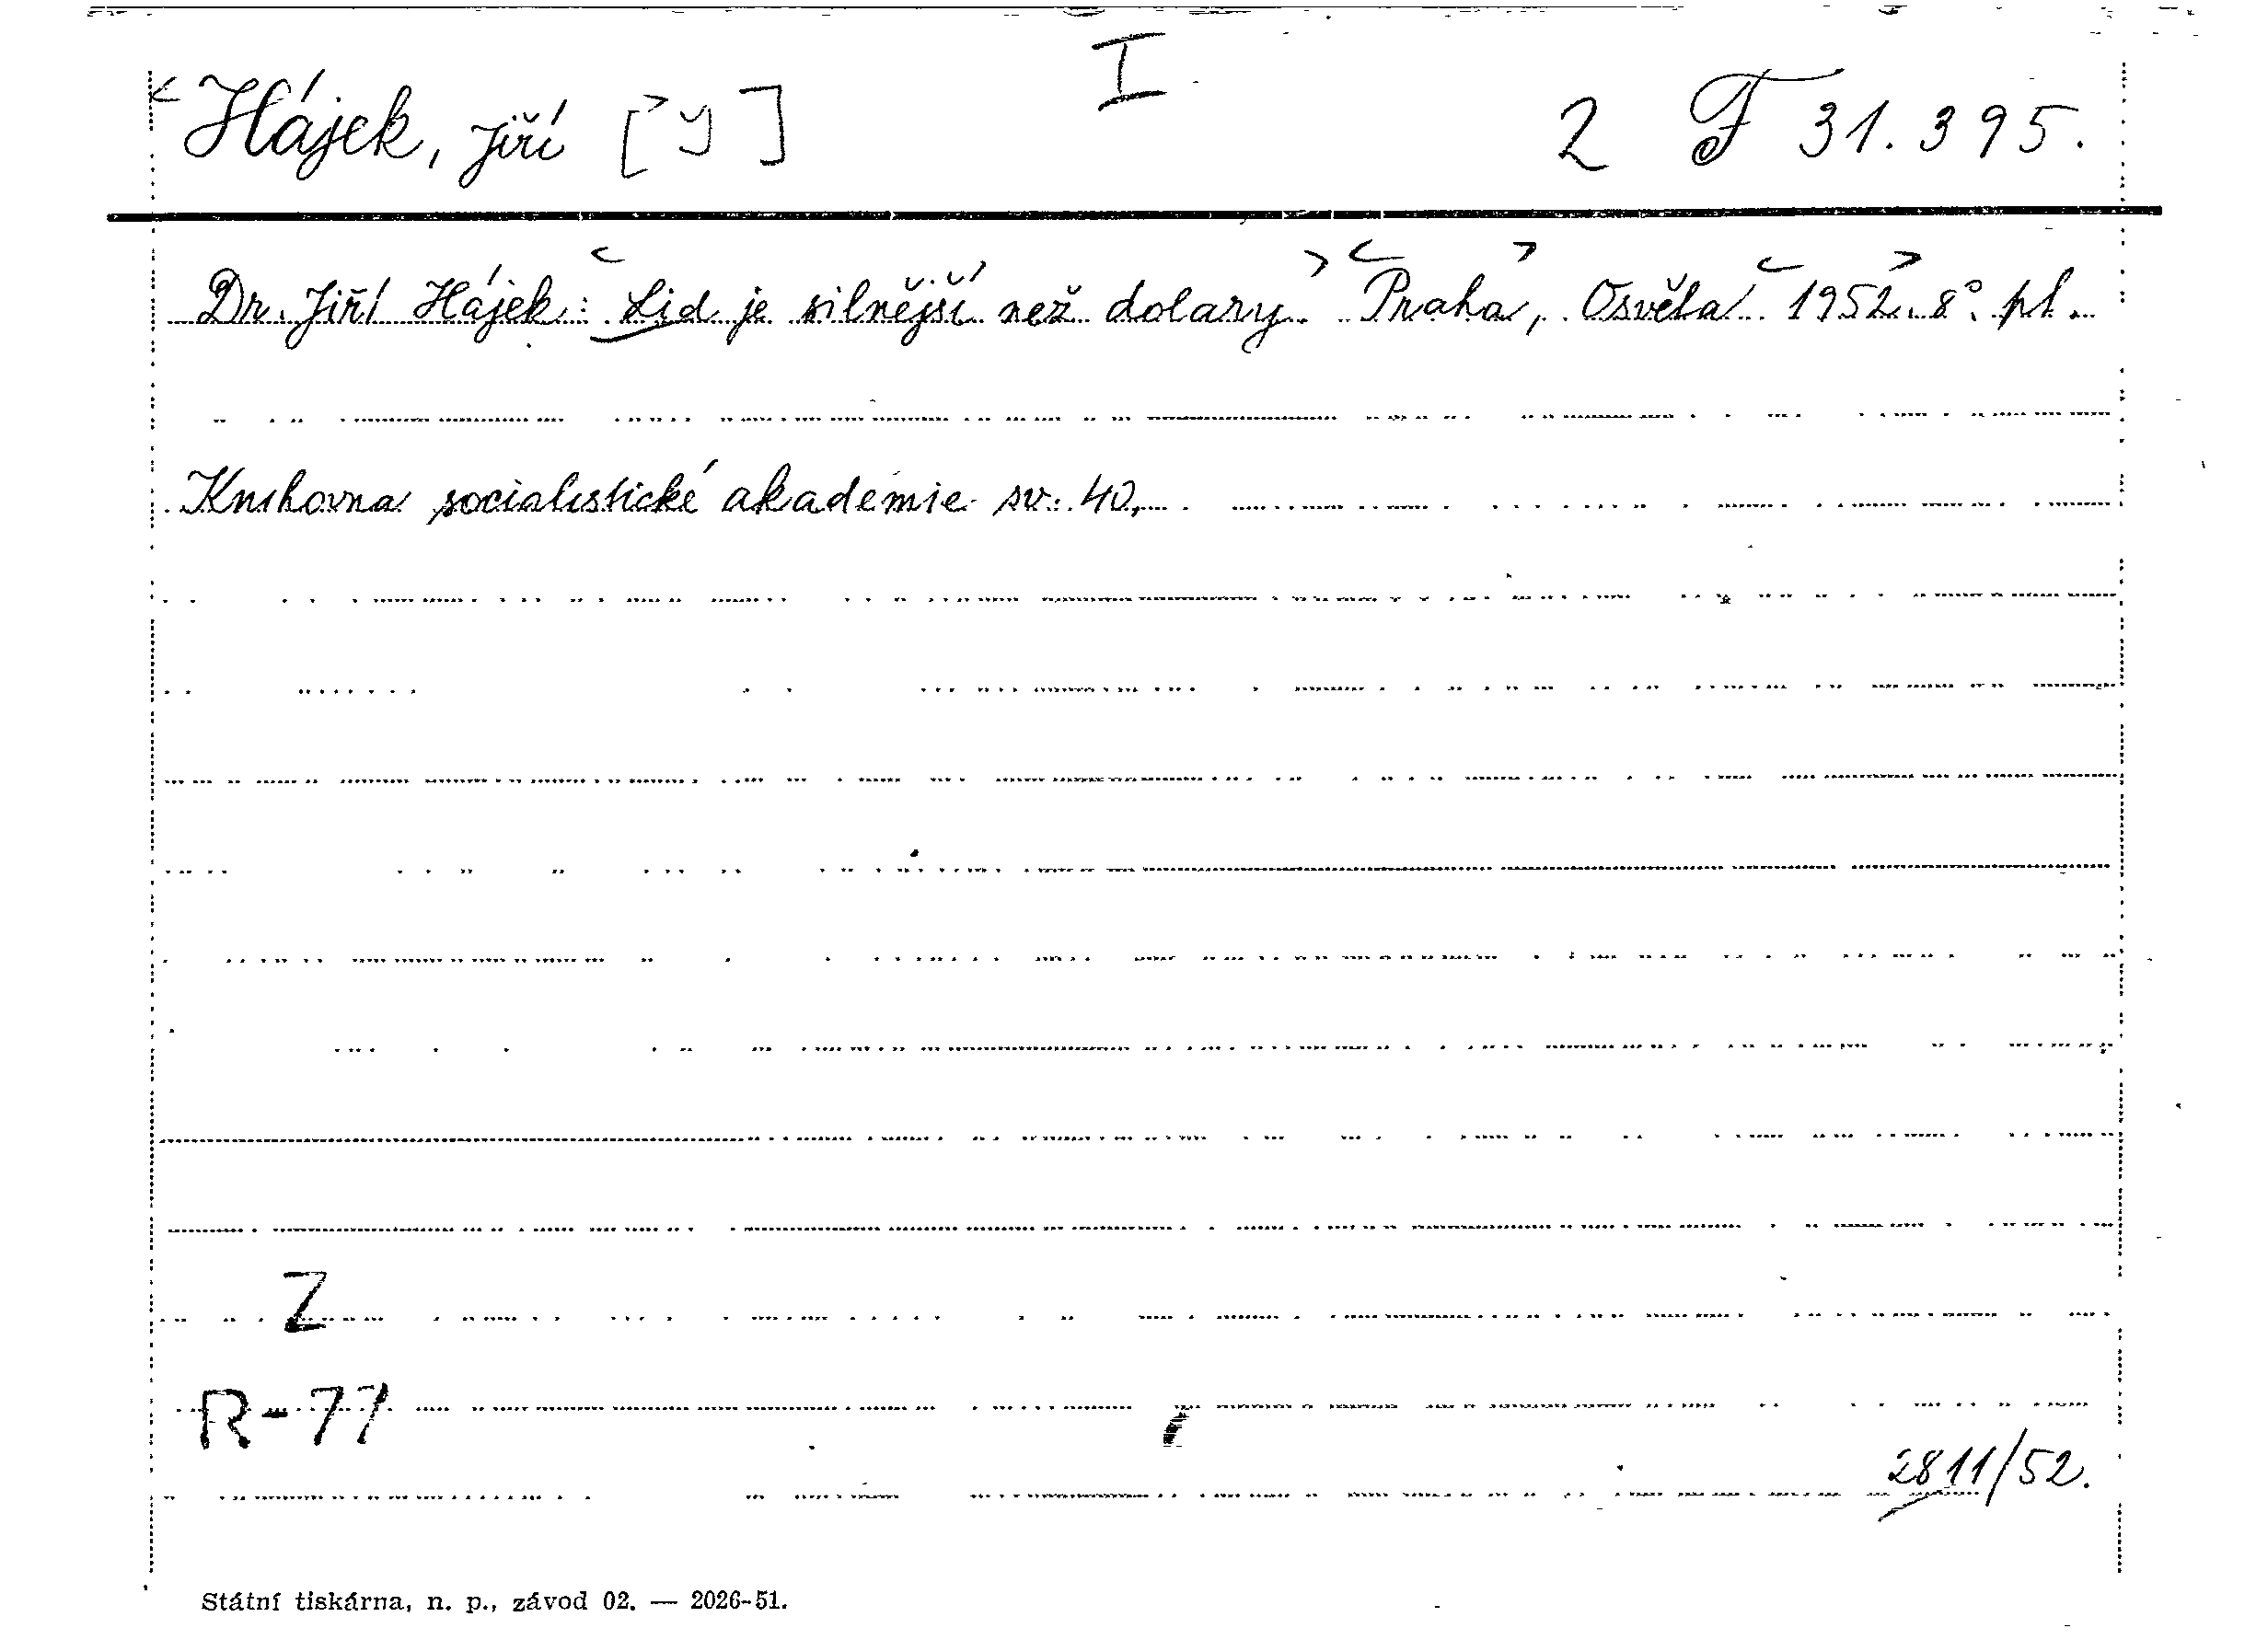 I
Hájek, Jiří [y] 2 F 31.395.
Dr. Jiří Hájek: Lid je silnější než dolary. Praha, Osvěta 1952. 8° pl.
Knihovna socialistické akademie sv. 40.
Z
R-77
2811/52.
Státní tiskárna, n. p., závod 02. — 2026-51.